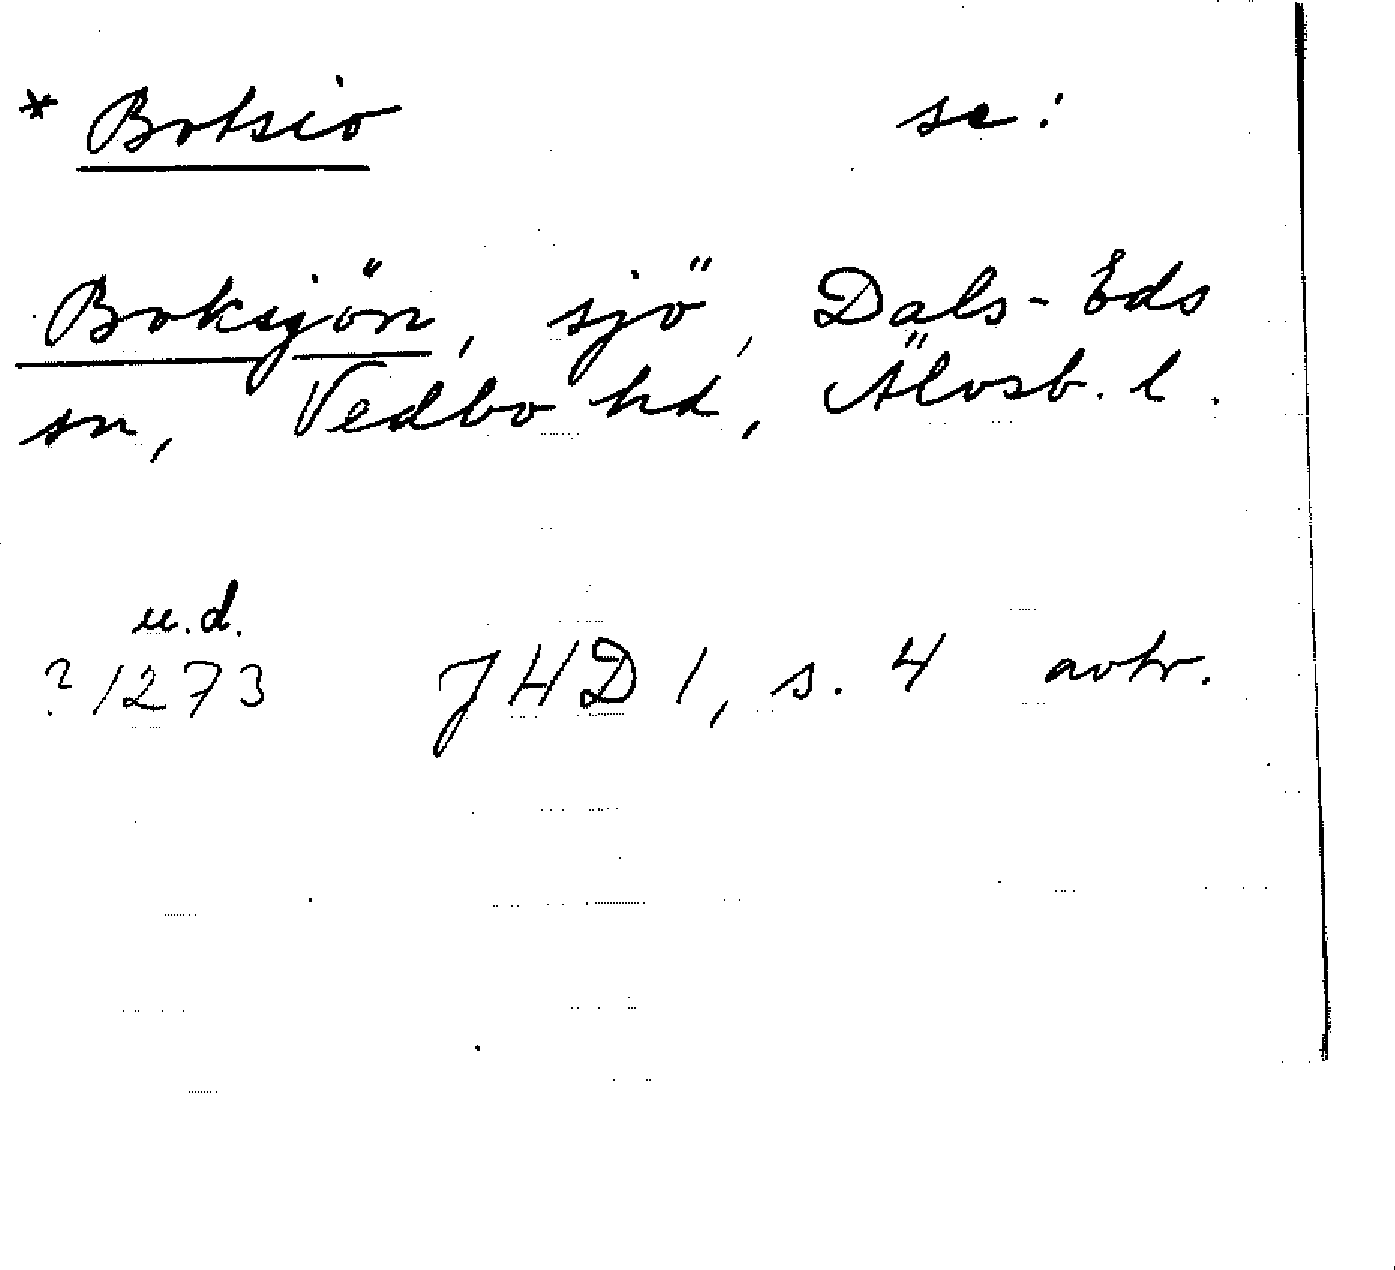 * Botsio se:
Boksjön, sjö, Dals-Eds
sn, Vedbo hd, Älvsb. l.
u.d.
? 1273 JHD 1, s. 4 avtr.